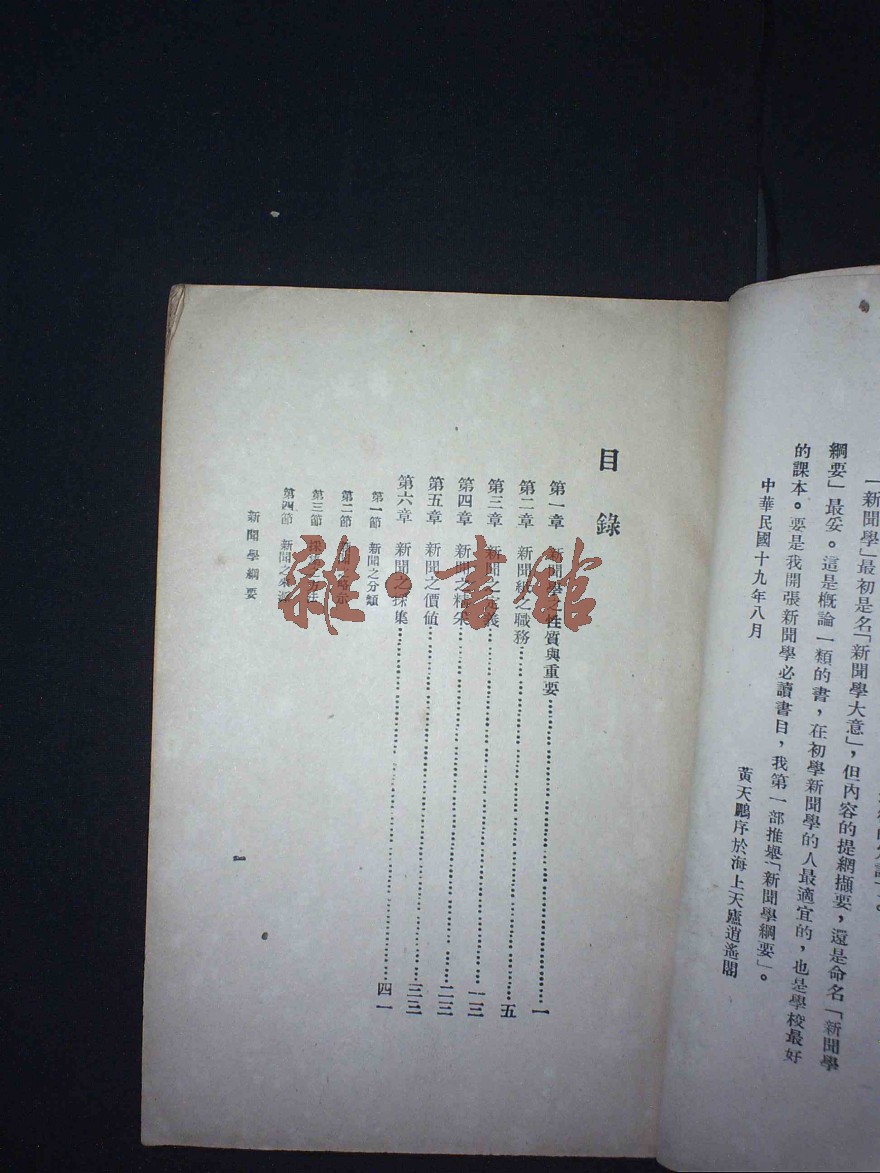 「新聞學」最初是名「新聞學大意」，但內容的提網擷要，還是命名「新聞學
綱要」最妥。這是概論一類的書，在初學新聞學的人最適宜的，也是學校最好
的課本。要是我開張新聞學必讀書目，我第一部推舉「新聞學綱要」。
中華民國十九年八月
黃天鵬序於海上天廬逍遙閣
目錄
第一章 新聞學之性質與重要……一
第二章 新聞紙之職務……五
第三章 新聞之定義……一三
第四章 新聞之精采……二三
第五章 新聞之價值……三三
第六章 新聞之採集……四一
第一節 新聞之分類
第二節 新聞
第三節 採
第四節 新聞之來源
新聞學綱要
一
雜·書館